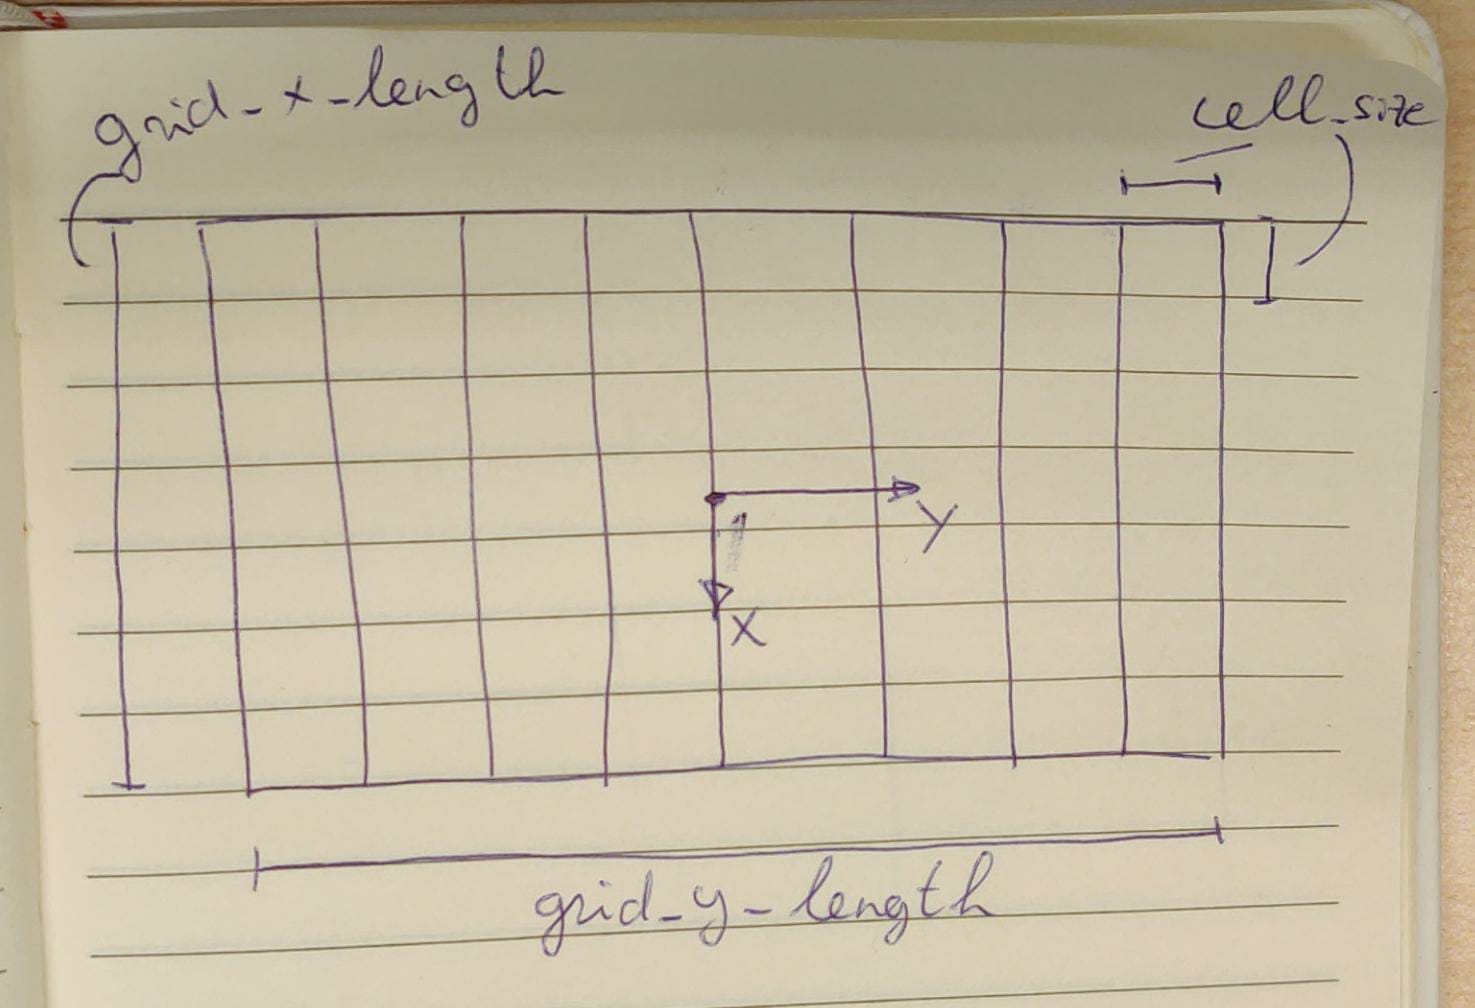 grid_x_length
cell_size
y
x
grid_y_length